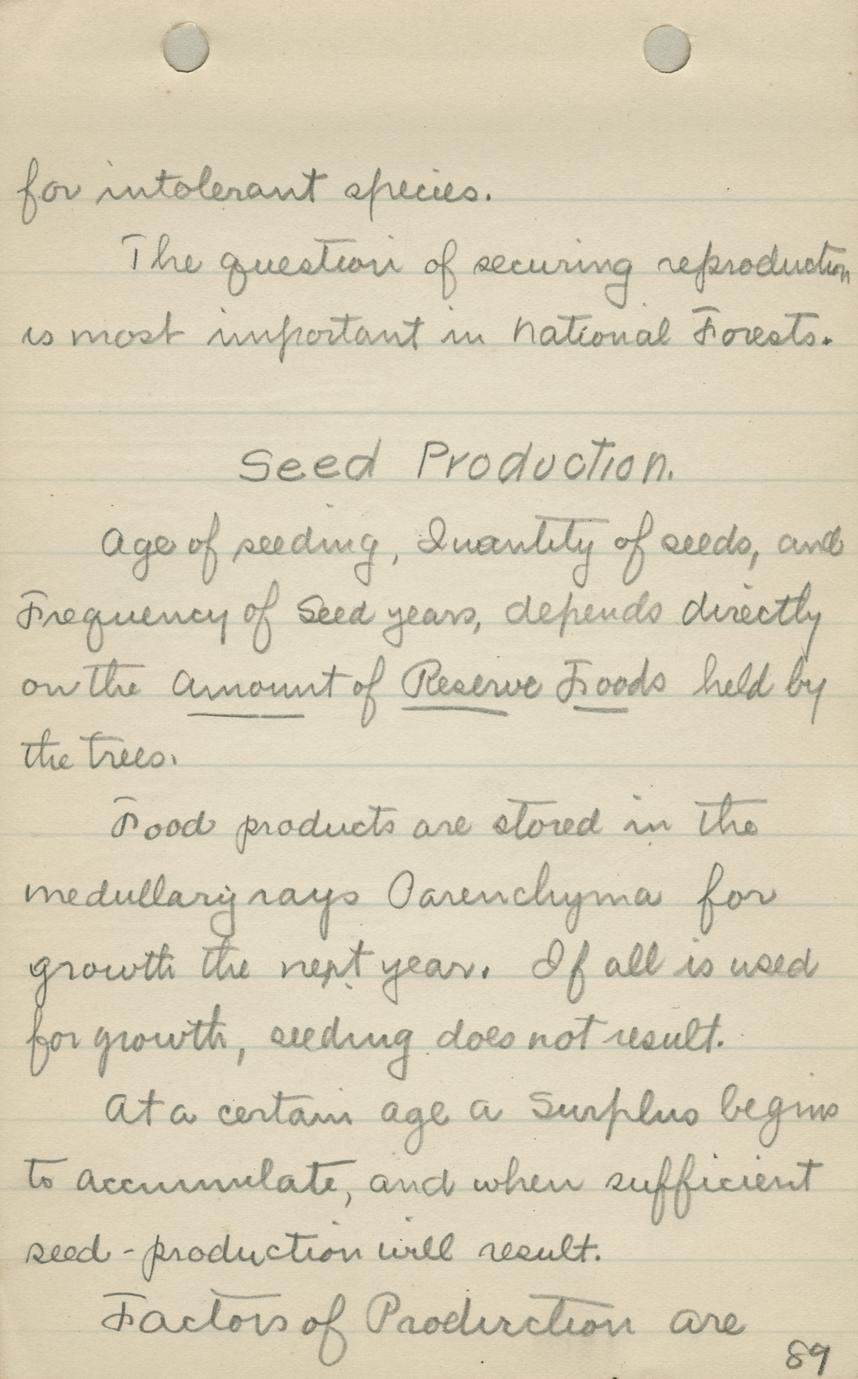 for intolerant species.
The question of securing reproduction
is most important in National Forests.
Seed Production.
Age of seeding, Quantity of seeds, and
Frequency of Seed years, depends directly
on the Amount of Reserve Foods held by
the trees.
Food products are stored in the
medullary rays Parenchyma for
growth the next year. If all is used
for growth, seeding does not result.
At a certain age a Surplus begins
to accumulate, and when sufficient
seed-production will result.
Factors of Production are
89